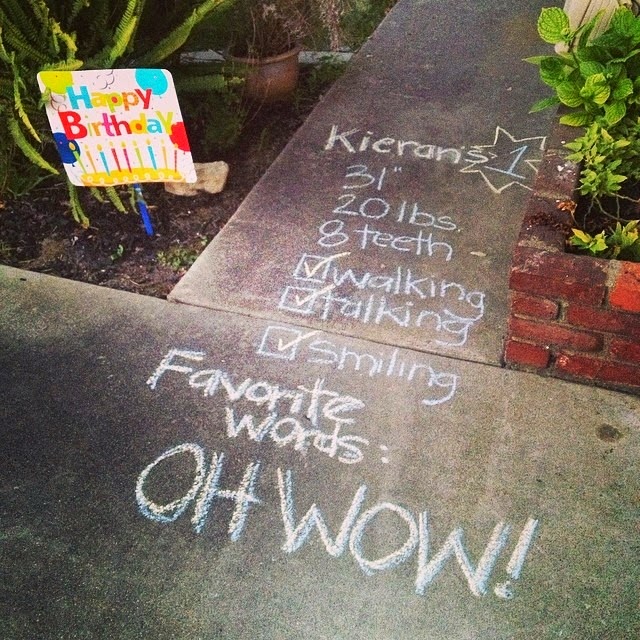 Happy
Birthday
Kieran's 1
31"
20 lbs.
8 teeth
walking
talking
smiling
Favorite
words:
OH WOW!